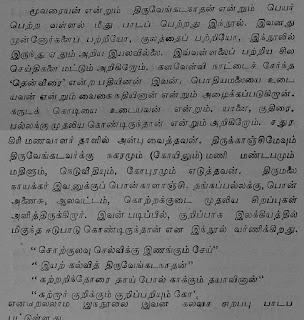 மூவரையன் என்றும் திருவேங்கடநாதன் என்றும் பெயர்
பெற்ற வள்ளல் மீது பாடப் பெற்றது இந்நூல். இவனது
முன்னோர்களைப் பற்றியோ, குலத்தைப் பற்றியோ, இந்நூலில்
இருந்து ஏதும் அறிய இயலவில்லை. இவ்வள்ளலைப் பற்றிய சில
செய்திகளே மட்டும் அறிகிறோம். களவேள்வி நாட்டைச் சேர்ந்த
'தென்வீரை' என்ற பதியினன் இவன். பொதியமலையை உடை
யவன் என்றும் வைகை நதியினன் என்றும் அழைக்கப்படுகிறான்.
கருடக் கொடியை உடையவன் என்றும், யானை, குதிரை,
பல்லக்கு முதலிய கொண்டிருந்தான் என்றும் அறிகிறோம். சதுர
கிரி மணவாளர் தாளில் அன்பு வைத்தவன். திருக்காஞ்சிமேவும்
திருவேங்கடவர்க்கு நகரமும் (கோயிலும்) மணி மண்டபமும்
மதிளும், நெடுவீதியும், கோபுரமும் எடுத்தவன். திருமலை
நாயக்கர் இவனுக்குப் பொன்காளாஞ்சி, தங்கப்பல்லக்கு, பொன்
அணை, ஆலவட்டம், கொற்றக்குடை முதலிய சிறப்புகள்
அளித்திருக்கிறார். இவன் படிப்பில், குறிப்பாக இலக்கியத்தில்
மிகுந்த ஈடுபாடு கொண்டிருந்தான் என இந்நூல் வர்ணிக்கிறது.
"சொற்குலவு செல்விக்கு இணங்கும் சேய்"
"இயற் கல்வித் திருவேங்கடநாதன்"
"கற்றறிந்தோரை தாய் போல் காக்கும் தயாவினான்"
"கற்றார் குறிக்கும் குறிப்பறியும் கோ',
என்றெல்லாம் இந்நூலை இவன் கல்விச் சிறப்பு பாடப்
பட்டுள்ளது